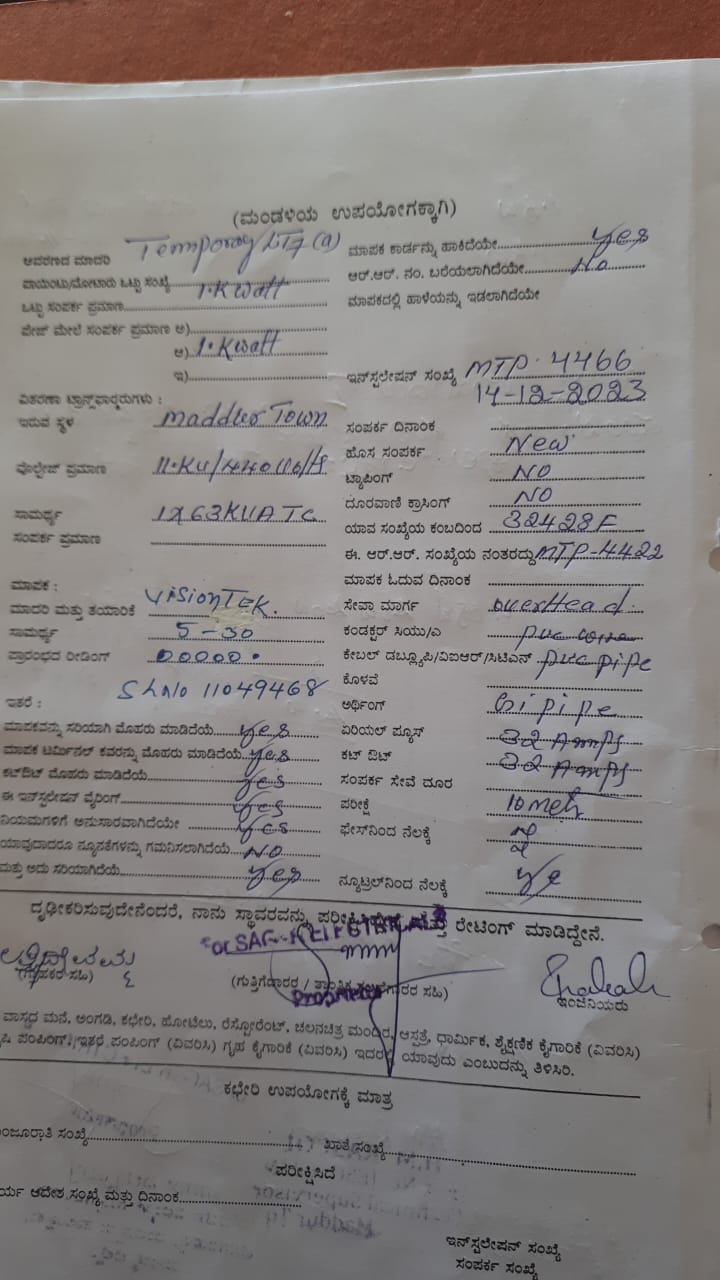 (ಮಂಡಳಿಯ ಉಪಯೋಗಕ್ಕಾಗಿ)
ಆವರಣದ ಮಾದರಿ Temporay LT7(a)
ಪಾಯಿಂಟು/ಮೋಟಾರು ಒಟ್ಟು ಸಂಖ್ಯೆ
ಒಟ್ಟು ಸಂಪರ್ಕ ಪ್ರಮಾಣ 1.Kwatt
ಪೇಜ್ ಮೇಲೆ ಸಂಪರ್ಕ ಪ್ರಮಾಣ ಅ)
ಆ) 1.Kwatt
ಇ)
ವಿತರಣಾ ಟ್ರಾನ್ಸ್‌ಫಾರ್ಮರುಗಳು :
ಇರುವ ಸ್ಥಳ Maddur Town
ವೊಲ್ಟೇಜ್ ಪ್ರಮಾಣ 11.KV/440Volts
ಸಾಮರ್ಥ್ಯ 1X63KVA TC
ಸಂಪರ್ಕ ಪ್ರಮಾಣ
ಮಾಪಕ :
ಮಾದರಿ ಮತ್ತು ತಯಾರಿಕೆ VisionTEK.
ಸಾಮರ್ಥ್ಯ 5-30
ಪ್ರಾರಂಭದ ರೀಡಿಂಗ್ 00000.
Sl No 11049468
ಇತರೆ :
ಮಾಪಕವನ್ನು ಸರಿಯಾಗಿ ಮೊಹರು ಮಾಡಿದೆಯೆ Yes
ಮಾಪಕ ಟರ್ಮಿನಲ್ ಕವರನ್ನು ಮೊಹರು ಮಾಡಿದೆಯೆ Yes
ಕಟ್‌ಔಟ್ ಮೊಹರು ಮಾಡಿದೆಯೆ Yes
ಈ ಇನ್‌ಸ್ಟಲೇಷನ್ ವೈರಿಂಗ್ Yes
ನಿಯಮಗಳಿಗೆ ಅನುಸಾರವಾಗಿದೆಯೇ Yes
ಯಾವುದಾದರೂ ನ್ಯೂನತೆಗಳನ್ನು ಗಮನಿಸಲಾಗಿದೆಯೆ No
ಮತ್ತು ಅದು ಸರಿಯಾಗಿದೆಯೆ Yes
ಮಾಪಕ ಕಾರ್ಡನ್ನು ಹಾಕಿದೆಯೇ Yes
ಆರ್.ಆರ್. ನಂ. ಬರೆಯಲಾಗಿದೆಯೇ No
ಮಾಪಕದಲ್ಲಿ ಹಾಳೆಯನ್ನು ಇಡಲಾಗಿದೆಯೇ
ಇನ್‌ಸ್ಟಲೇಷನ್ ಸಂಖ್ಯೆ MTP.4466
14-12-2023
ಸಂಪರ್ಕ ದಿನಾಂಕ
ಹೊಸ ಸಂಪರ್ಕ New
ಟ್ಯಾಪಿಂಗ್ NO
ದೂರವಾಣಿ ಕ್ರಾಸಿಂಗ್ NO
ಯಾವ ಸಂಖ್ಯೆಯ ಕಂಬದಿಂದ 32428F
ಈ. ಆರ್.ಆರ್. ಸಂಖ್ಯೆಯ ನಂತರದ್ದು MTP-4422
ಮಾಪಕ ಓದುವ ದಿನಾಂಕ
ಸೇವಾ ಮಾರ್ಗ overHead.
ಕಂಡಕ್ಟರ್ ಸಿಯು/ಎ
ಕೇಬಲ್ ಡಬ್ಲ್ಯೂಪಿ/ವಿಐಆರ್/ಸಿಟಿಎಸ್ pvc pipe
ಕೊಳವೆ
ಅರ್ಥಿಂಗ್ Gi pipe
ಏರಿಯಲ್ ಫ್ಯೂಸ್ 32 Amps
ಕಟ್ ಔಟ್ 32 Amps
ಸಂಪರ್ಕ ಸೇವೆ ದೂರ
ಪರೀಕ್ಷೆ 10 metr
ಫೇಸ್‌ನಿಂದ ನೆಲಕ್ಕೆ
ನ್ಯೂಟ್ರಲ್‌ನಿಂದ ನೆಲಕ್ಕೆ
ದೃಢೀಕರಿಸುವುದೇನೆಂದರೆ, ನಾನು ಸ್ಥಾವರವನ್ನು ರೇಟಿಂಗ್ ಮಾಡಿದ್ದೇನೆ.
(ಗ್ರಾಹಕರ ಸಹಿ)
Proprietor
ಇಂಜಿನಿಯರು
ವಾಸದ ಮನೆ, ಅಂಗಡಿ, ಕಛೇರಿ, ಹೋಟೆಲು, ರೆಸ್ಟೋರೆಂಟ್, ಚಲನಚಿತ್ರ ಮಂದಿರ, ಆಸ್ಪತ್ರೆ, ಧಾರ್ಮಿಕ, ಶೈಕ್ಷಣಿಕ ಕೈಗಾರಿಕೆ (ವಿವರಿಸಿ)
ಪಂಪಿಂಗ್, ಇತರೆ ಪಂಪಿಂಗ್ (ವಿವರಿಸಿ) ಗೃಹ ಕೈಗಾರಿಕೆ (ವಿವರಿಸಿ) ಇದರಲ್ಲಿ ಯಾವುದು ಎಂಬುದನ್ನು ತಿಳಿಸಿರಿ.
ಕಛೇರಿ ಉಪಯೋಗಕ್ಕೆ ಮಾತ್ರ
ಂಜೂರಾತಿ ಸಂಖ್ಯೆ ಖಾತೆ ಸಂಖ್ಯೆ
ಪರೀಕ್ಷಿಸಿದೆ
ರ್ಯ ಆದೇಶ ಸಂಖ್ಯೆ ಮತ್ತು ದಿನಾಂಕ
ಇನ್‌ಸ್ಟಲೇಷನ್ ಸಂಖ್ಯೆ
ಸಂಪರ್ಕ ಸಂಖ್ಯೆ